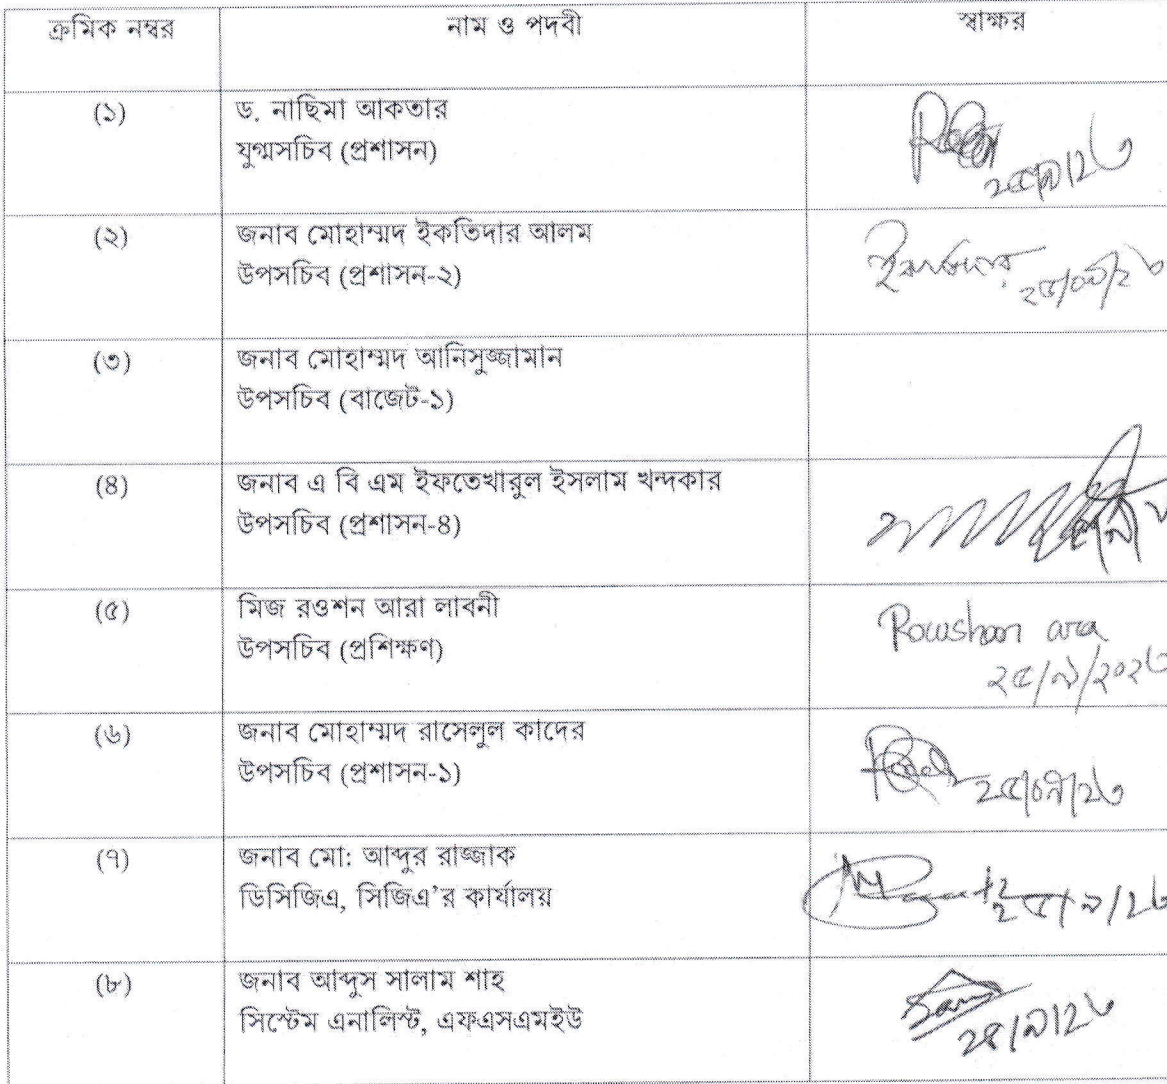 ক্রমিক নম্বর নাম ও পদবী স্বাক্ষর
(১) ড. নাছিমা আকতার
যুগ্মসচিব (প্রশাসন)
(২) জনাব মোহাম্মদ ইকতিদার আলম
উপসচিব (প্রশাসন-২)
(৩) জনাব মোহাম্মদ আনিসুজ্জামান
উপসচিব (বাজেট-১)
(৪) জনাব এ বি এম ইফতেখারুল ইসলাম খন্দকার
উপসচিব (প্রশাসন-৪)
(৫) মিজ রওশন আরা লাবনী
উপসচিব (প্রশিক্ষণ)
Rowshan ara
(৬) জনাব মোহাম্মদ রাসেলুল কাদের
উপসচিব (প্রশাসন-১)
(৭) জনাব মো: আব্দুর রাজ্জাক
ডিসিজিএ, সিজিএ’র কার্যালয়
(৮) জনাব আব্দুস সালাম শাহ
সিস্টেম এনালিস্ট, এফএসএমইউ